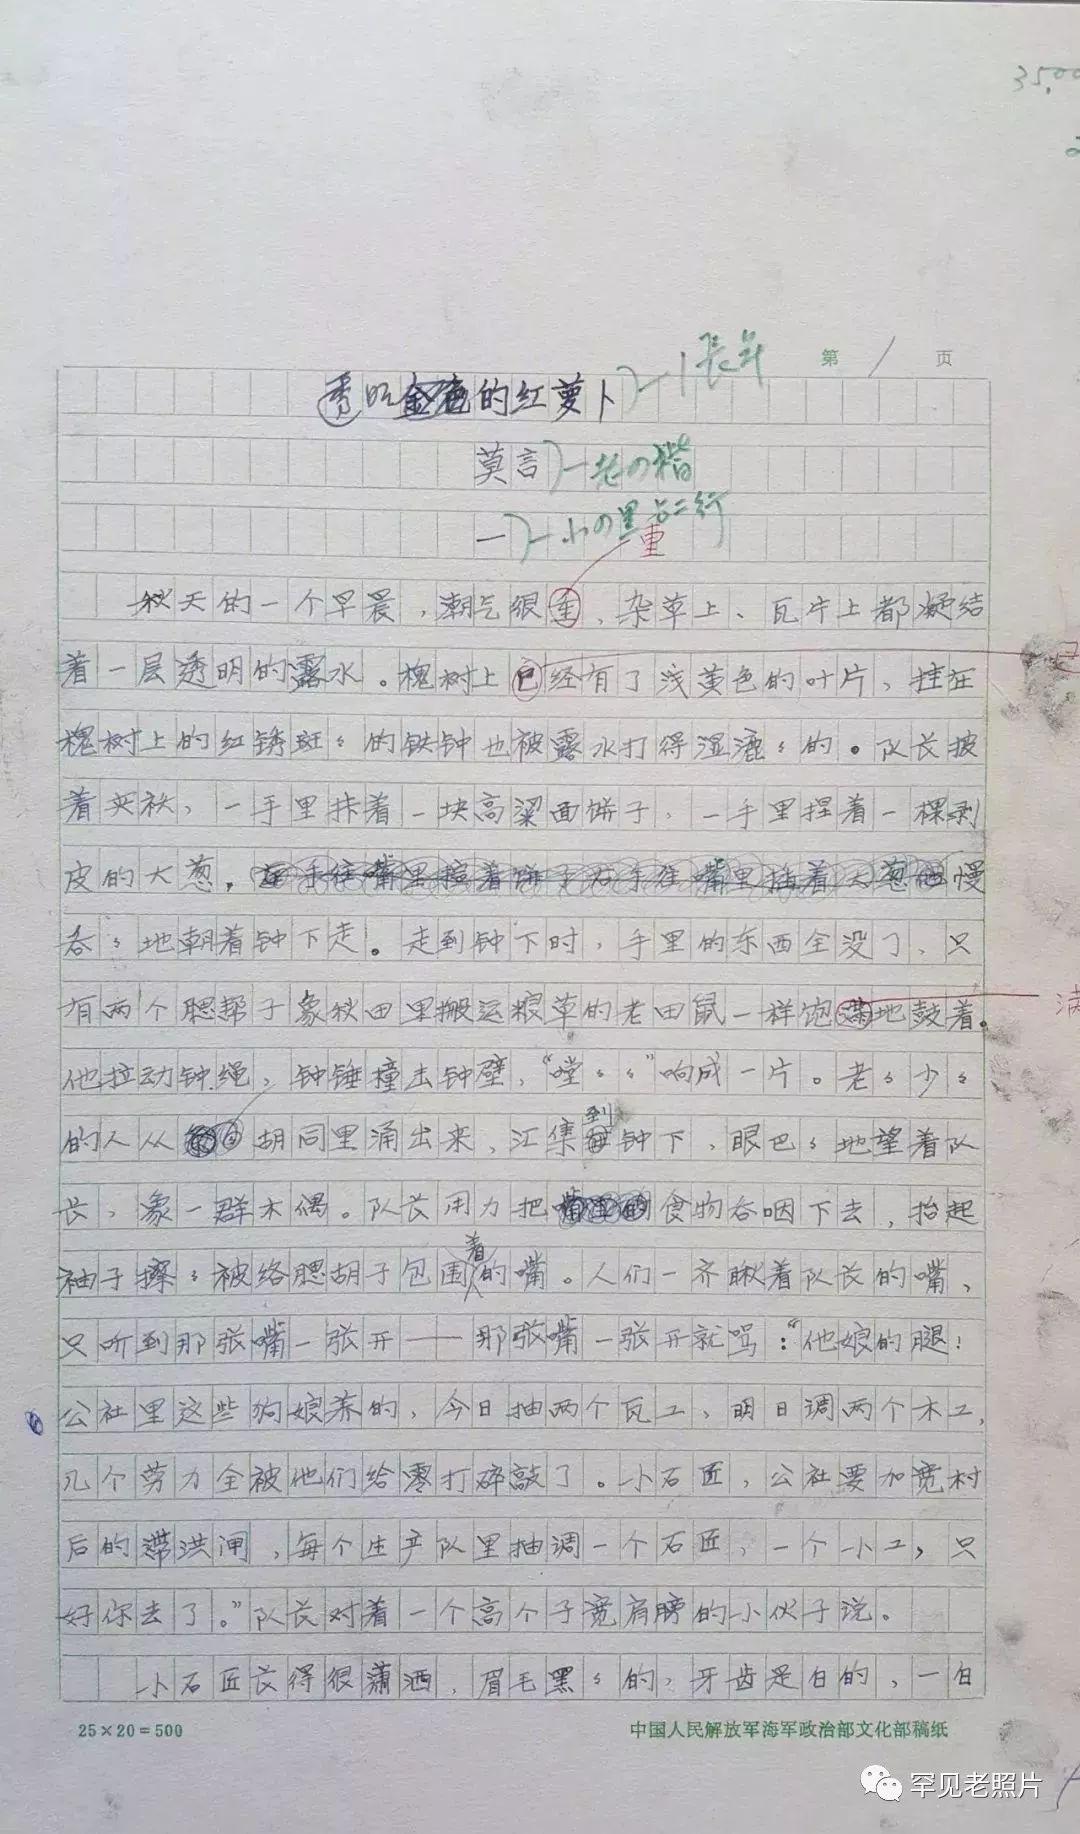 35.00
第 1 页
透明金色的红萝卜 1長牟
莫言 老の楷
一 小の黑占二行
重
秋天的一个早晨，潮气很重，杂草上、瓦片上都凝结
着一层透明的露水。槐树上已经有了浅黄色的叶片，挂在
槐树上的红锈斑々的铁钟也被露水打得湿漉々的。队长披
着夹袄，一手里拤着一块高粱面饼子，一手里捏着一棵剥
皮的大葱，慢
吞々地朝着钟下走。走到钟下时，手里的东西全没了，只
有两个腮帮子象秋田里搬运粮草的老田鼠一样饱满地鼓着。
满
他拉动钟绳，钟锤撞击钟壁，“嘡々々”响成一片。老々少々
的人从胡同里涌出来，汇集到钟下，眼巴々地望着队
长，象一群木偶。队长用力把食物吞咽下去，抬起
袖子擦々被络腮胡子包围着的嘴。人们一齐瞅着队长的嘴，
只听到那张嘴一张开——那张嘴一张开就骂：“他娘的腿！
公社里这些狗娘养的，今日抽两个瓦工，明日调两个木工，
几个劳力全被他们给零打碎敲了。小石匠，公社要加宽村
后的滞洪闸，每个生产队里抽调一个石匠，一个小工，只
好你去了。”队长对着一个高个子宽肩膀的小伙子说。
小石匠长得很潇洒，眉毛黑々的，牙齿是白的，一白
25×20=500 中国人民解放军海军政治部文化部稿纸
罕见老照片